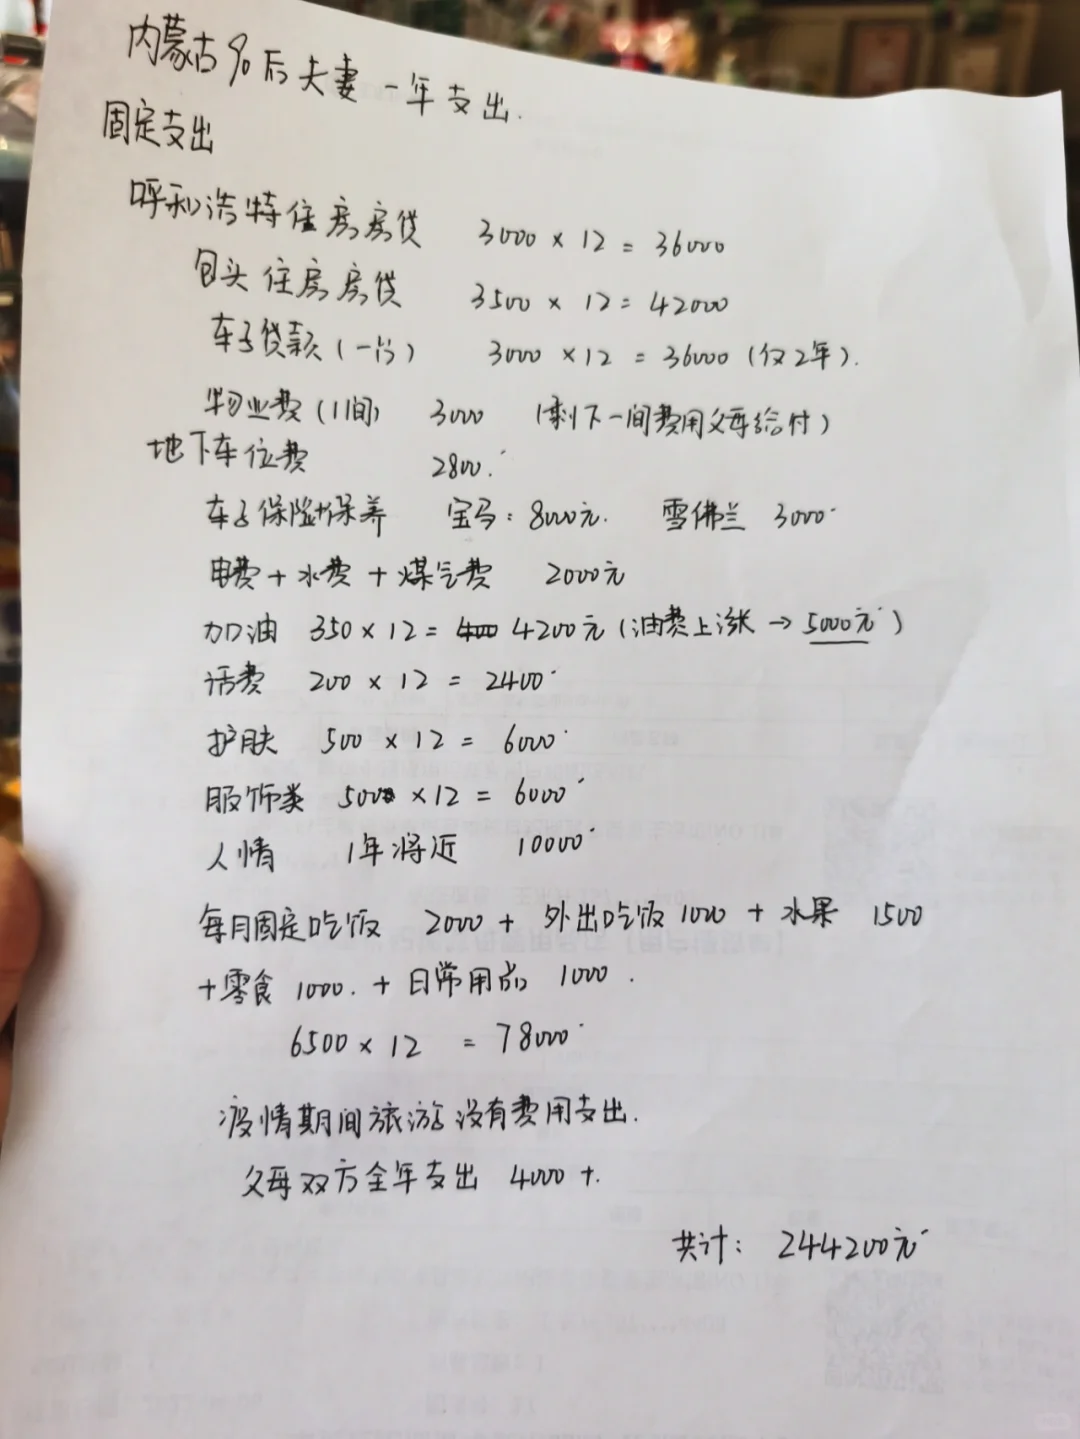 内蒙古90后夫妻一年支出.
固定支出
呼和浩特住房房贷 3000 × 12 = 36000
包头住房房贷 3500 × 12 = 42000
车子贷款(一台) 3000 × 12 = 36000 (仅2年).
物业费(1间) 3000 (剩下一间费用父母给付)
地下车位费 2800.
车子保险+保养 宝马: 8000元. 雪佛兰 3000
电费 + 水费 + 煤气费 2000元
加油 350 × 12 = 4200元 (油费上涨 → 5000元)
话费 200 × 12 = 2400
护肤 500 × 12 = 6000
服饰类 500 × 12 = 6000
人情 1年将近 10000
每月固定吃饭 2000 + 外出吃饭 1000 + 水果 1500
+ 零食 1000. + 日常用品 1000.
6500 × 12 = 78000
疫情期间旅游没有费用支出.
父母双方全年支出 4000 +.
共计: 244200元